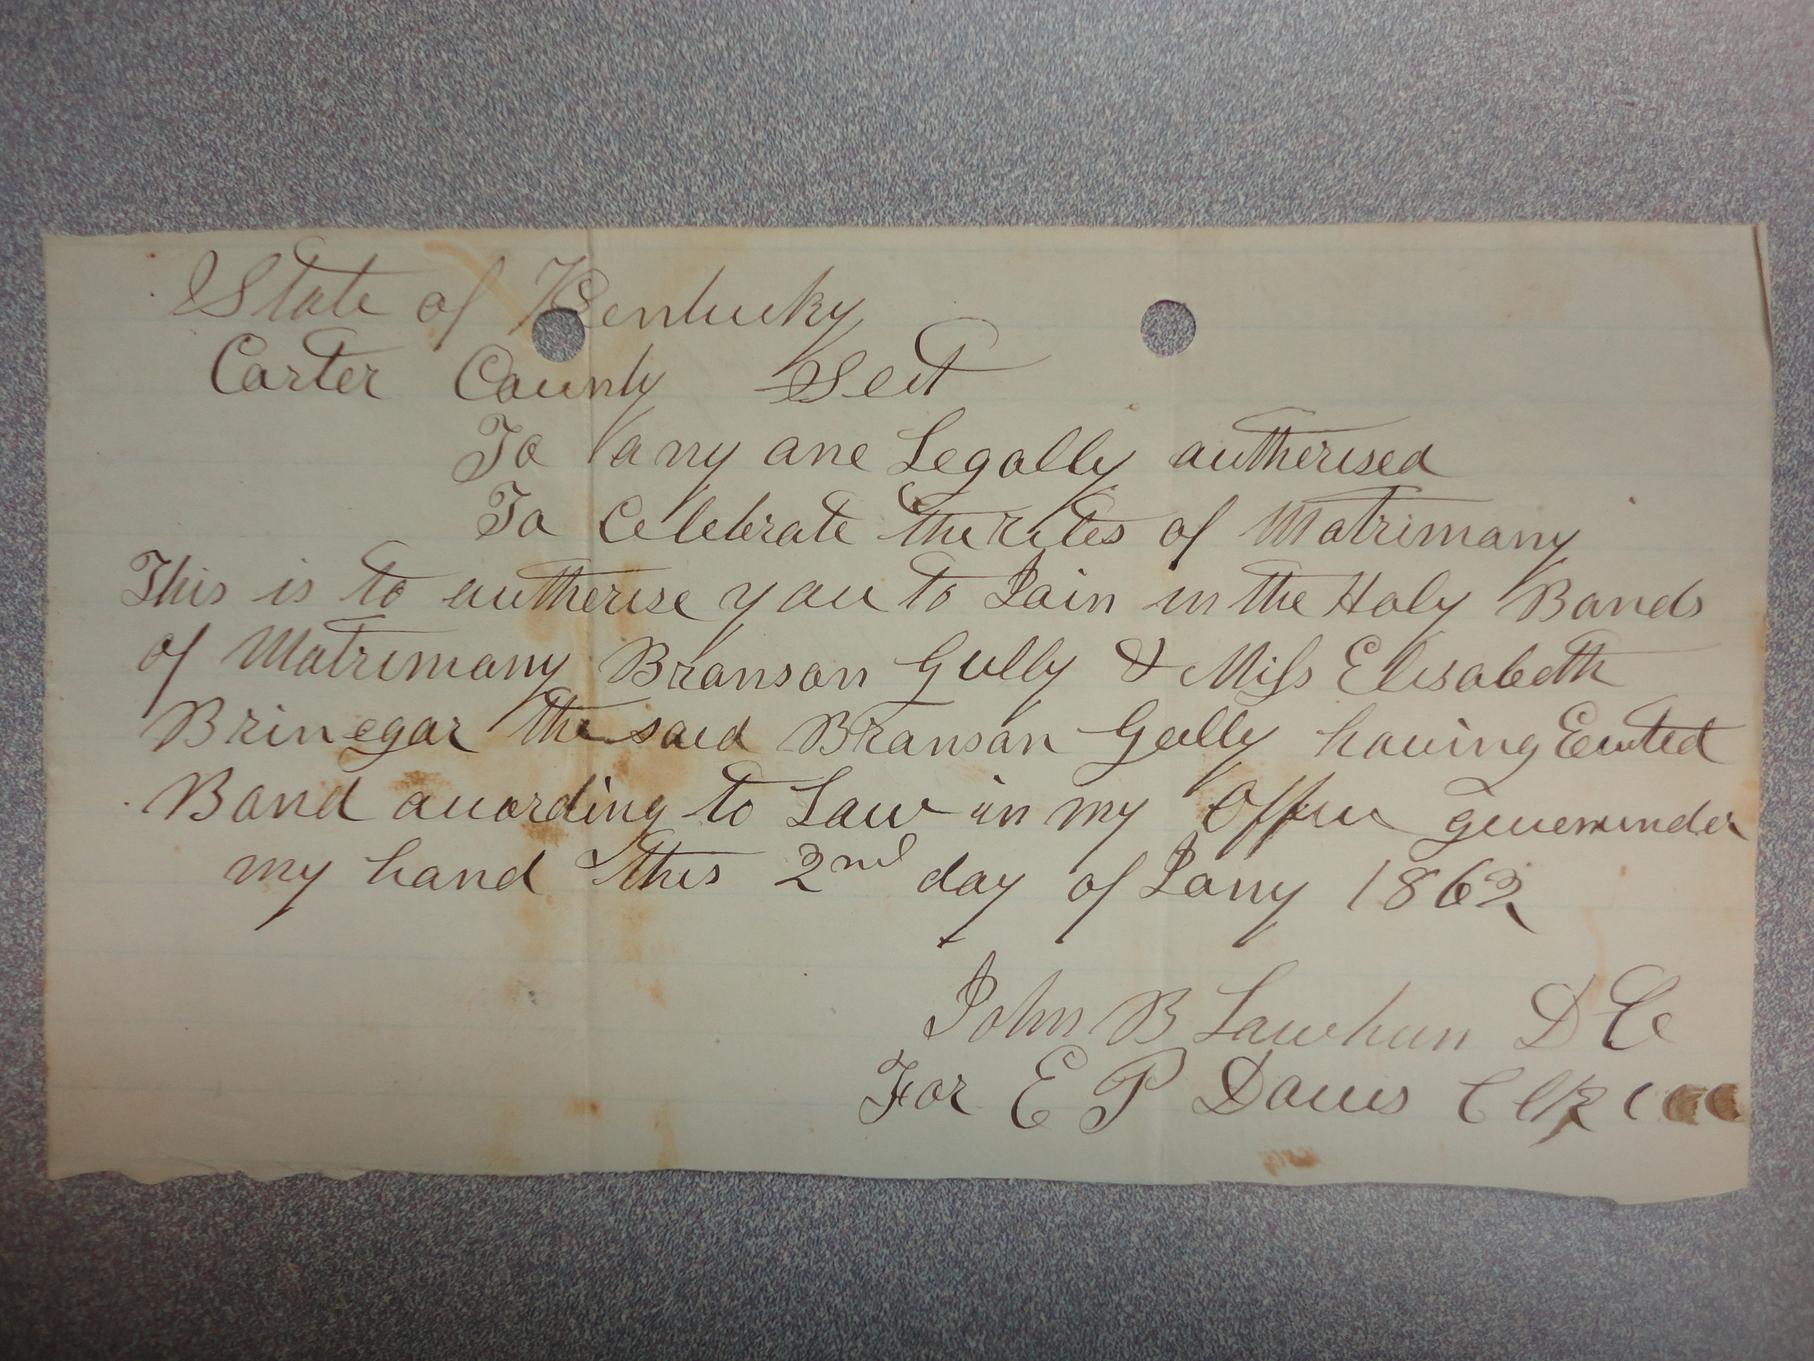 State of Kentucky
Carter County Sect
To any one Legally autherised
To Celebrate the Rites of Matrimony
This is to autherise you to Join in the Holy Bonds
of Matrimony Branson Gully & Miss Elisabeth
Brinegar the said Branson Gully having Exuted
Bond according to Law in my Office given under
my hand this 2nd day of Jany 1862
John B Lawhun D C
For E P Davis Clk